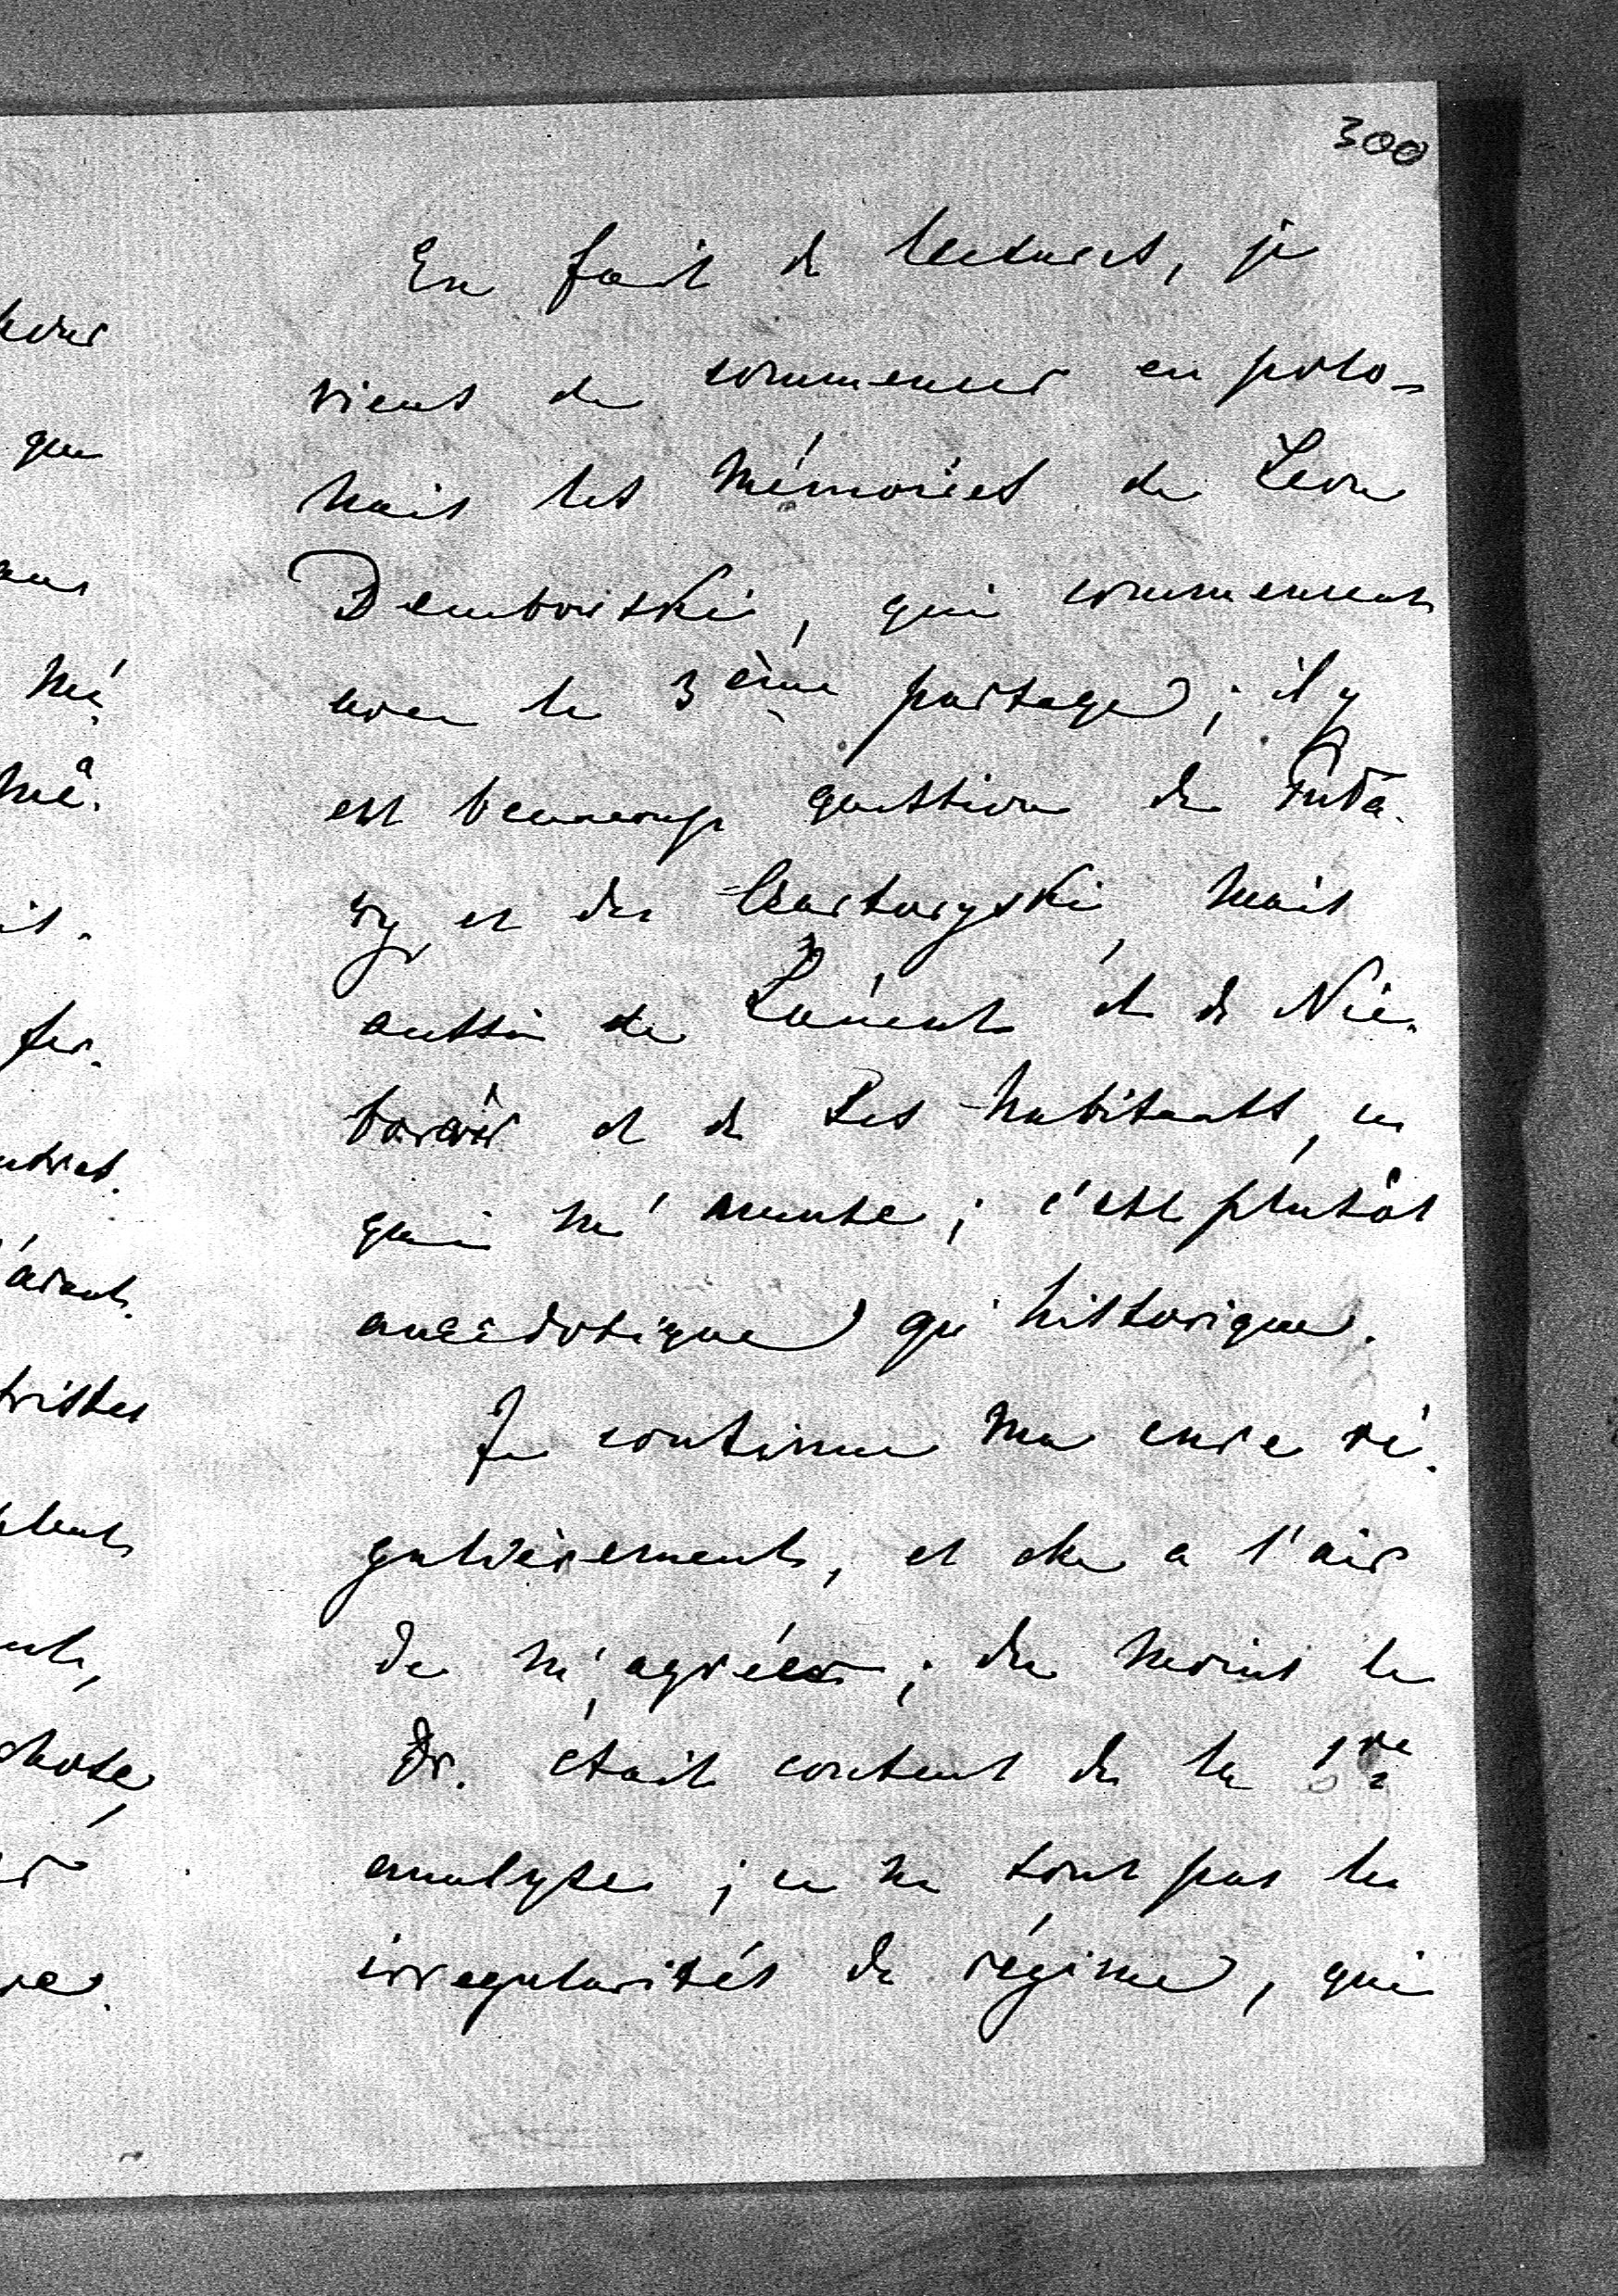 300
En fait de lectures, je
viens de commencer en polo-
nais les Mémoires de Léon
Dembowski, qui commencent
avec le 3ème partage; il y
est beaucoup question de Puła-
wy et des Czartoryski, mais
aussi de Łańcut et de Nie-
borów et de ses habitants, ce
qui m'amuse; c'est plutôt
anecdotique qu'historique.
Je continue ma cure ré-
gulièrement, et elle a l'air
de m'agréer; du moins le
Dr. était content de la 1re
analyse; ce ne sont pas les
irregularités de régime, qui